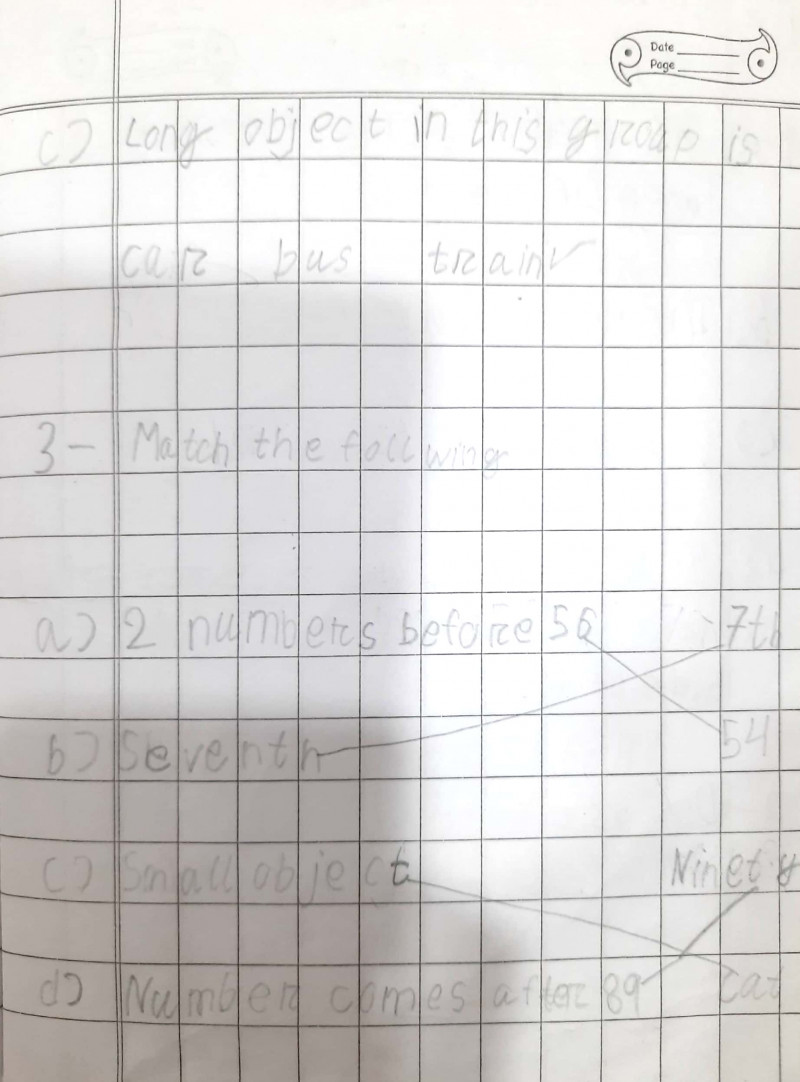 Date
Page
c) Long object in this group is
car bus train✓
3- Match the follwing
a) 2 numbers before 56 7th
b) Seventh 54
c) Small object Ninety
d) Number comes after 89 cat